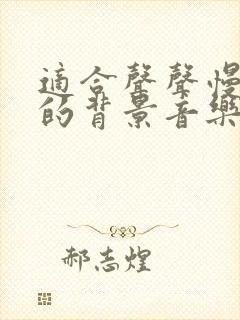 適合聲聲慢
的背景音樂
郝志煌